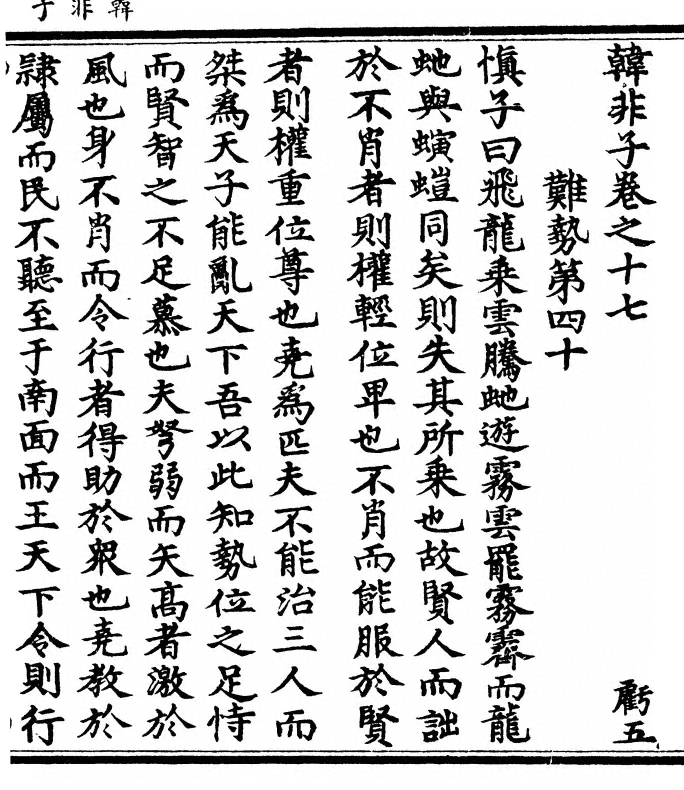 韓非子
韓非子卷之十七 虧五
難勢第四十
愼子曰飛龍乗雲騰虵遊霧雲罷霧霽而龍
虵與螾螘同矣則失其所乗也故賢人而詘
於不肖者則權輕位卑也不肖而能服於賢
者則權重位尊也堯爲匹夫不能治三人而
桀爲天子能亂天下吾以此知勢位之足恃
而賢智之不足慕也夫弩弱而矢高者激於
風也身不肖而令行者得助於衆也堯教於
隷屬而民不聽至于南面而王天下令則行